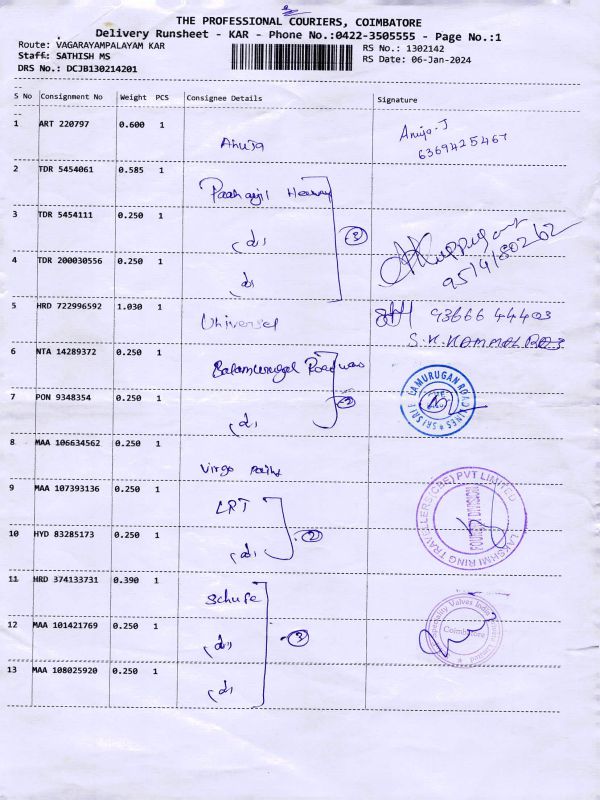 THE PROFESSIONAL COURIERS, COIMBATORE
Delivery Runsheet - KAR - Phone No.:0422-3505555 - Page No.:1
Route: VAGARAYAMPALAYAM KAR
RS No.: 1302142
Staff: SATHISH MS
RS Date: 06-Jan-2024
DRS No.: DCJB130214201
S No Consignment No Weight PCS Consignee Details Signature
1 ART 220797 0.600 1 Anuja Anuja.J
6369425467
2 TDR 5454061 0.585 1
3 TDR 5454111 0.250 1 (do) 3
4 TDR 200030556 0.250 1 (do)
5 HRD 722996592 1.030 1 Universal 93666 44403
6 NTA 14289372 0.250 1
7 PON 9348354 0.250 1 (do) 2
8 MAA 106634562 0.250 1 Virgo
9 MAA 107393136 0.250 1 LRT
LAKSHMI RING TRAVELLERS(CBE) PVT LIMITED
10 HYD 83285173 0.250 1 (do) 2
11 HRD 374133731 0.390 1
12 MAA 101421769 0.250 1 (do) 3
Coimbatore
13 MAA 108025920 0.250 1 (do)